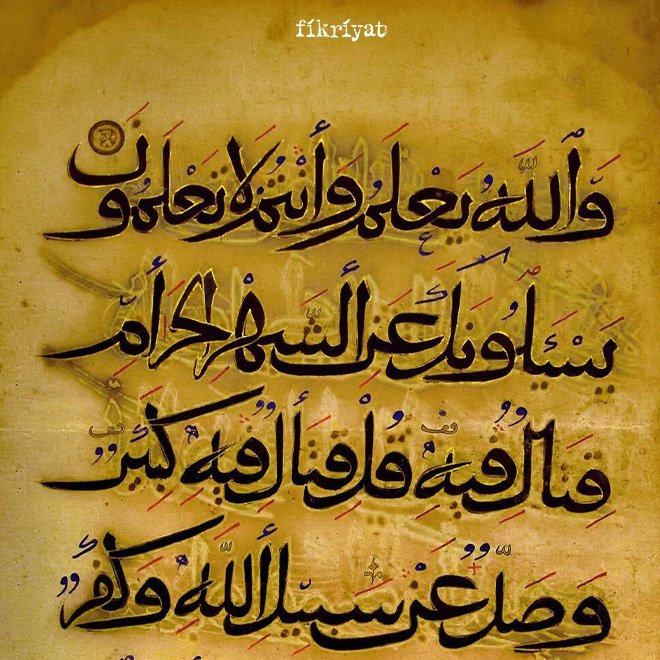 fikriyat
وَٱللَّهُ يَعْلَمُ وَأَنتُمْ لَا تَعْلَمُونَ
يَسْـَٔلُونَكَ عَنِ ٱلشَّهْرِ ٱلْحَرَامِ
قِتَالٍ فِيهِ قُلْ قِتَالٌ فِيهِ كَبِيرٌ
وَصَدٌّ عَن سَبِيلِ ٱللَّهِ وَكُفْرٌ